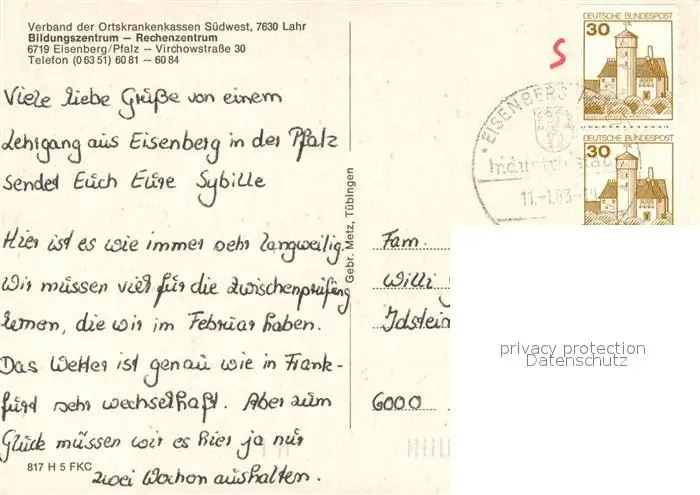 Verband der Ortskrankenkassen Südwest, 7630 Lahr
Bildungszentrum — Rechenzentrum
6719 Eisenberg/Pfalz — Virchowstraße 30
Telefon (0 63 51) 60 81 — 60 84
Viele liebe Grüße von einem
Lehrgang aus Eisenberg in der Pfalz
sendet Euch Eure Sybille
Hier ist es wie immer sehr langweilig.
Wir müssen viel für die Zwischenprüfung
lernen, die wir im Februar haben.
Das Wetter ist genau wie in Frank-
furt sehr wechselhaft. Aber zum
Glück müssen wir es hier ja nur
zwei Wochen aushalten.
817 H 5 FKC
Gebr. Metz, Tübingen
S
DEUTSCHE BUNDESPOST
30
DEUTSCHE BUNDESPOST
30
EISENBERG
11.-1.83
Fam.
Willi
Idstein
6000
privacy protection
Datenschutz